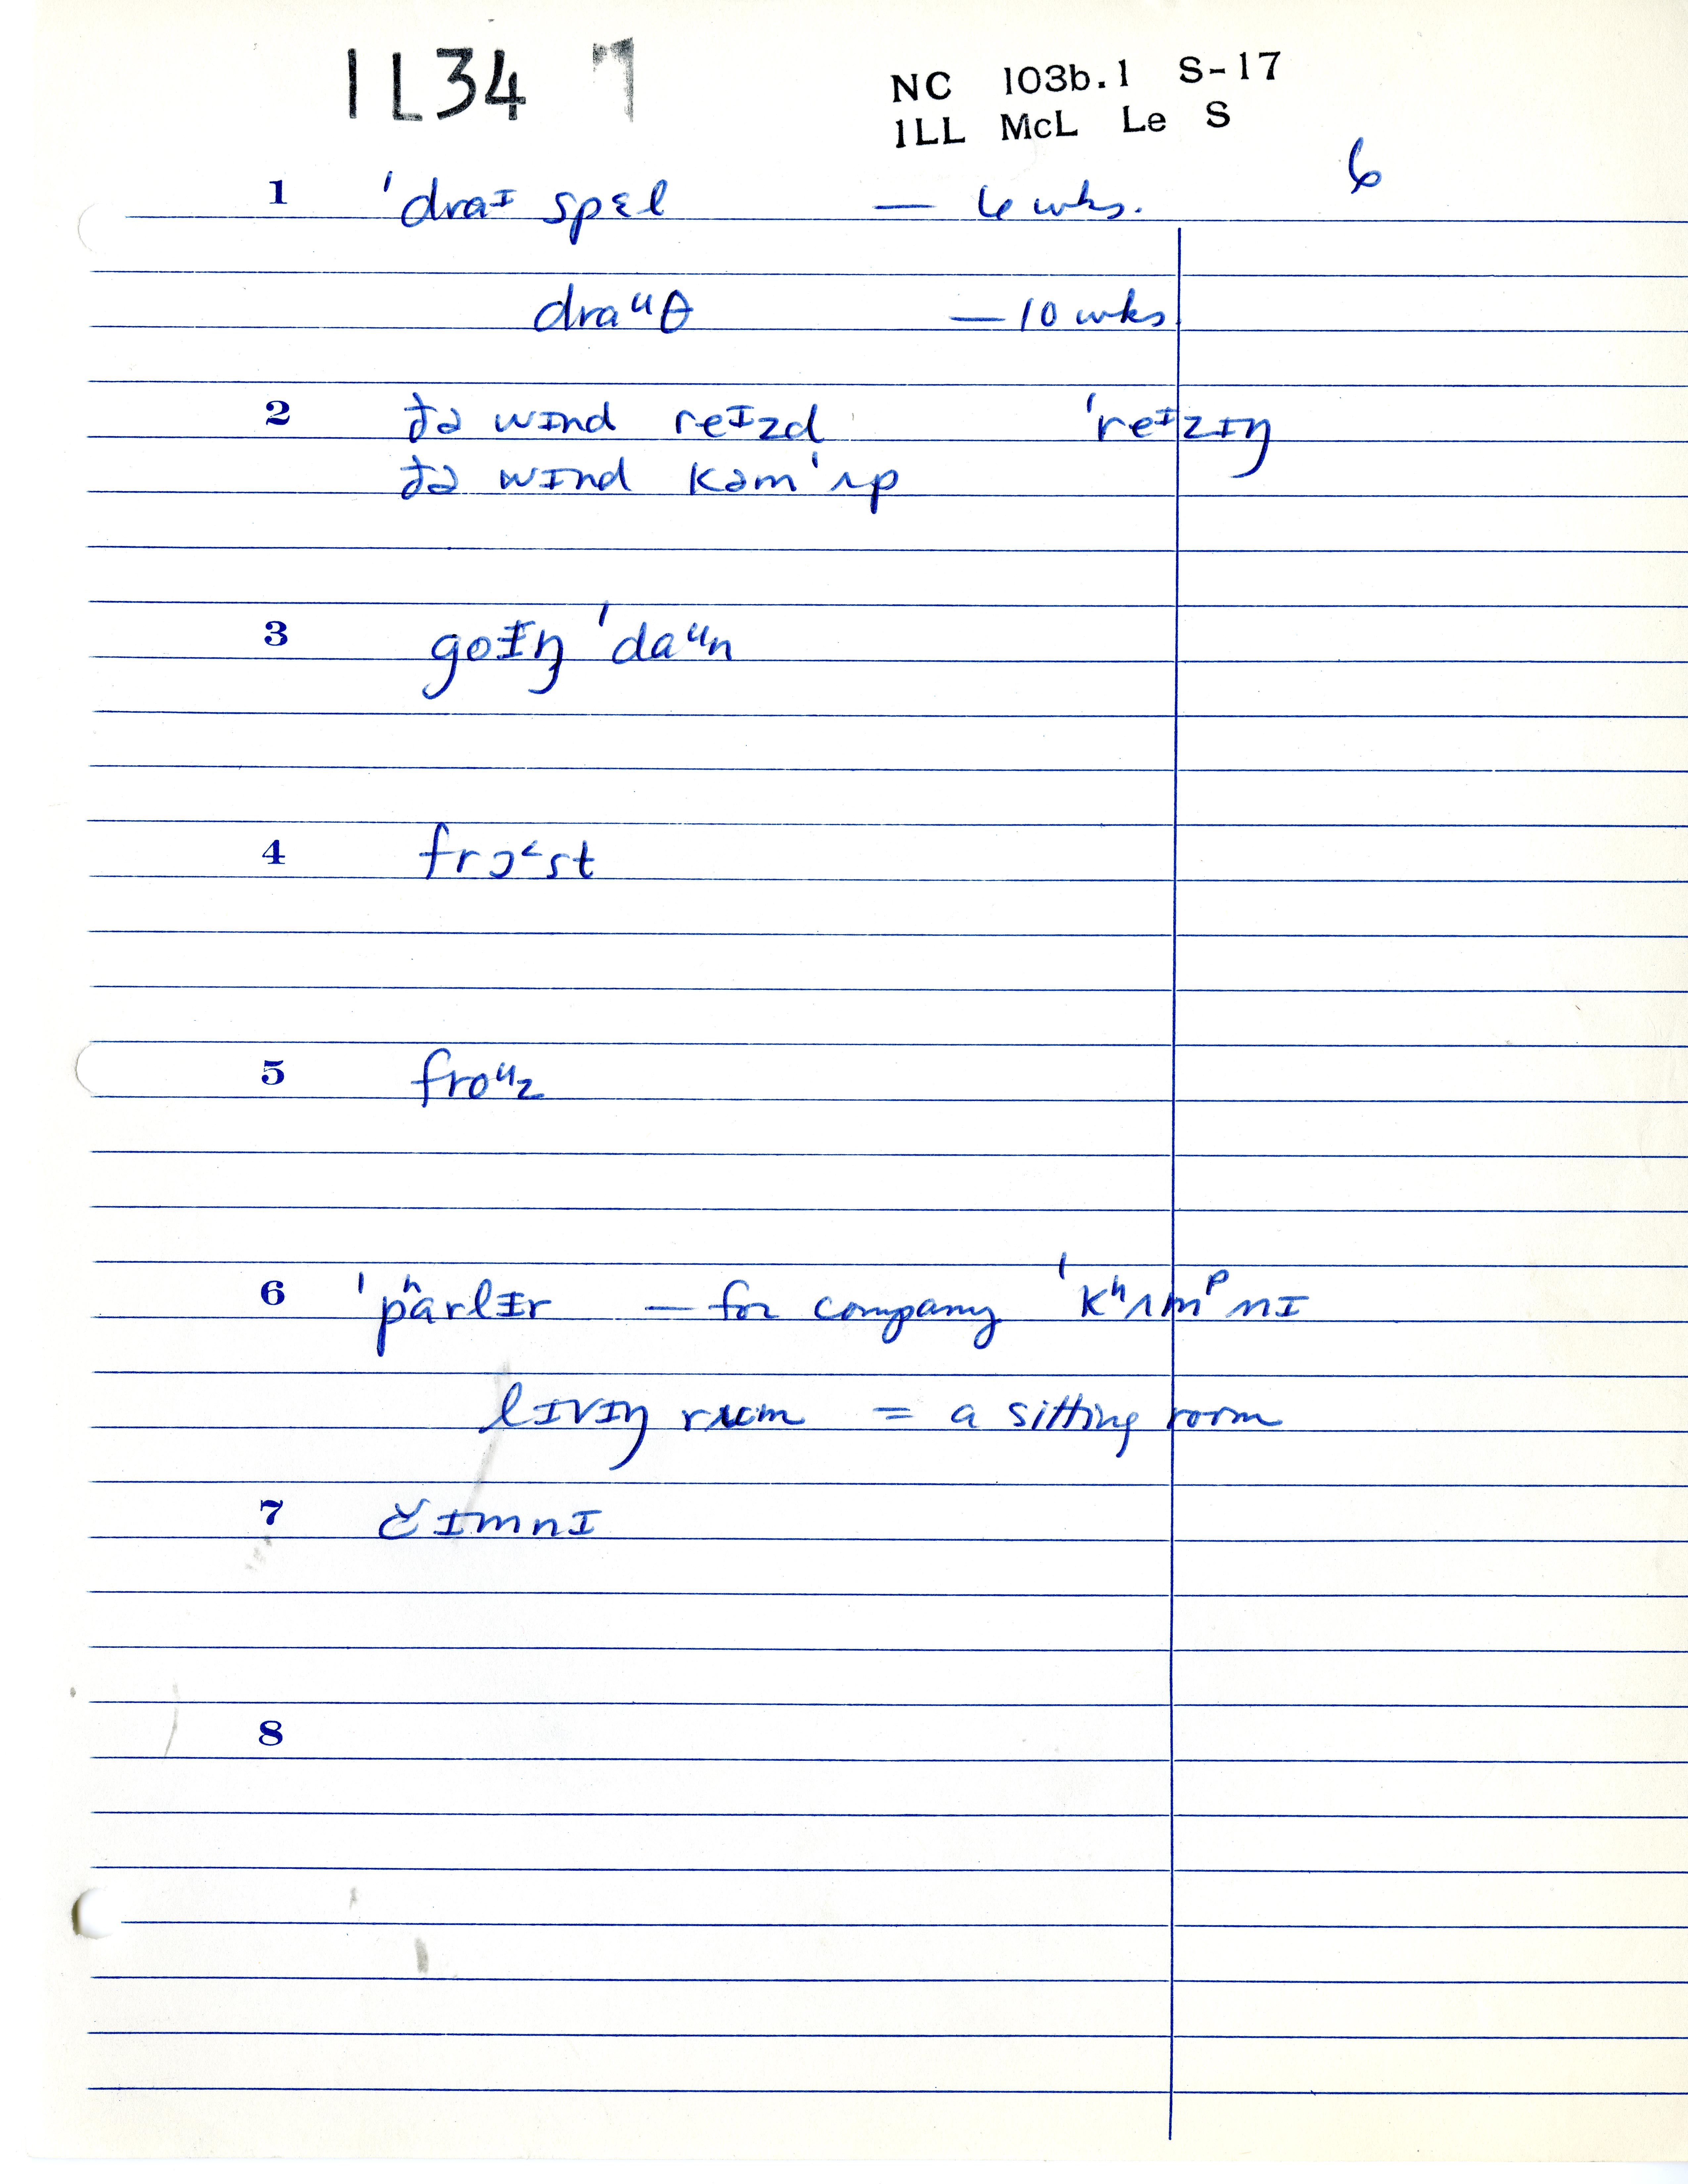 1L34 1
NC 103b.1 S-17
1LL McL Le S
6
1 ˈdraᶦ spɛl — 6 wks.
draᵘθ — 10 wks
2 ðə wɪnd reᶦzd ˈreᶦzɪŋ
ðə wɪnd kəm ˈʌp
3 goɪŋ ˈdaᵘn
4 frɔ˂st
5 froᵘz
6 ˈpʰɑrlɪr — for company ˈkʰʌmᵖnɪ
lɪvɪŋ rum = a sitting room
7 čɪmnɪ
8